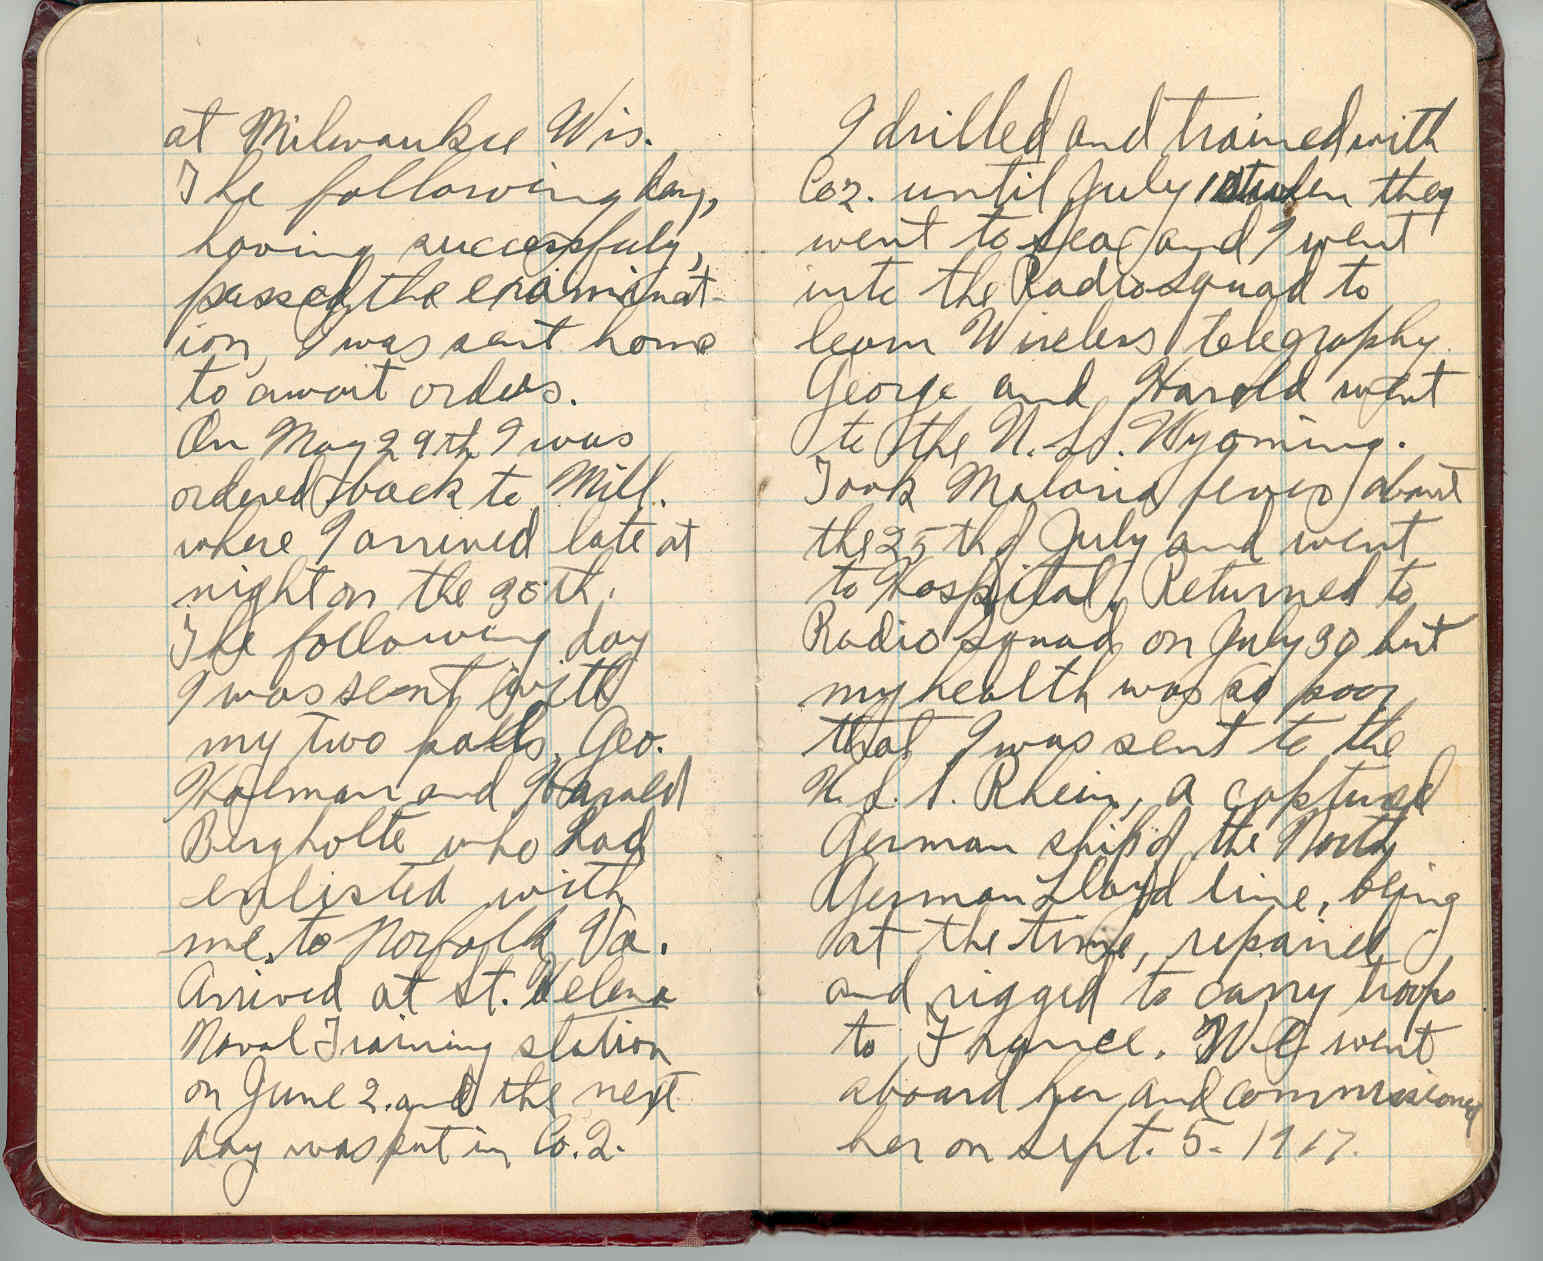 at Milwaukee Wis.
The following day,
having successfuly,
passed the examinat-
ion, I was sent home
to await orders.
On May 29th I was
ordered back to Mill.
where I arrived late at
night on the 30th.
The following day
I was sent with
my two palls, Geo.
and Harold
Bergholte who had
enlisted with
me, to Norfolk Va.
Arrived at St. Helena
Naval Training station
on June 2. and the next
day was put in Co. 2.
I drilled and trained with
Co 2. until July when they
went to sea and I went
into the Radio squad to
learn Wireless telegraphy.
George and Harold went
to the U.S.S. Wyoming.
Took Malaria fever about
the 25th of July and went
to Hospital. Returned to
Radio squad on July 30 but
my health was so poor
that I was sent to the
U.S.S. Rhein, a captured
German ship of the North
German Lloyd line, being
at the time, repaired
and rigged to carry troops
to France. We went
aboard her and commissioned
her on Sept. 5. 1917.